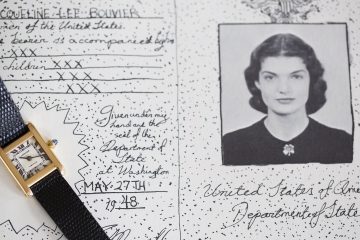 QUELINE LEE BOUVIER
of the United States.
accompanied by
XXX
children XXX
XXX
Given under my
hand and the
seal of the
Department of
State
at Washington
MAY 27TH
1948
United States of Ame
Department of State